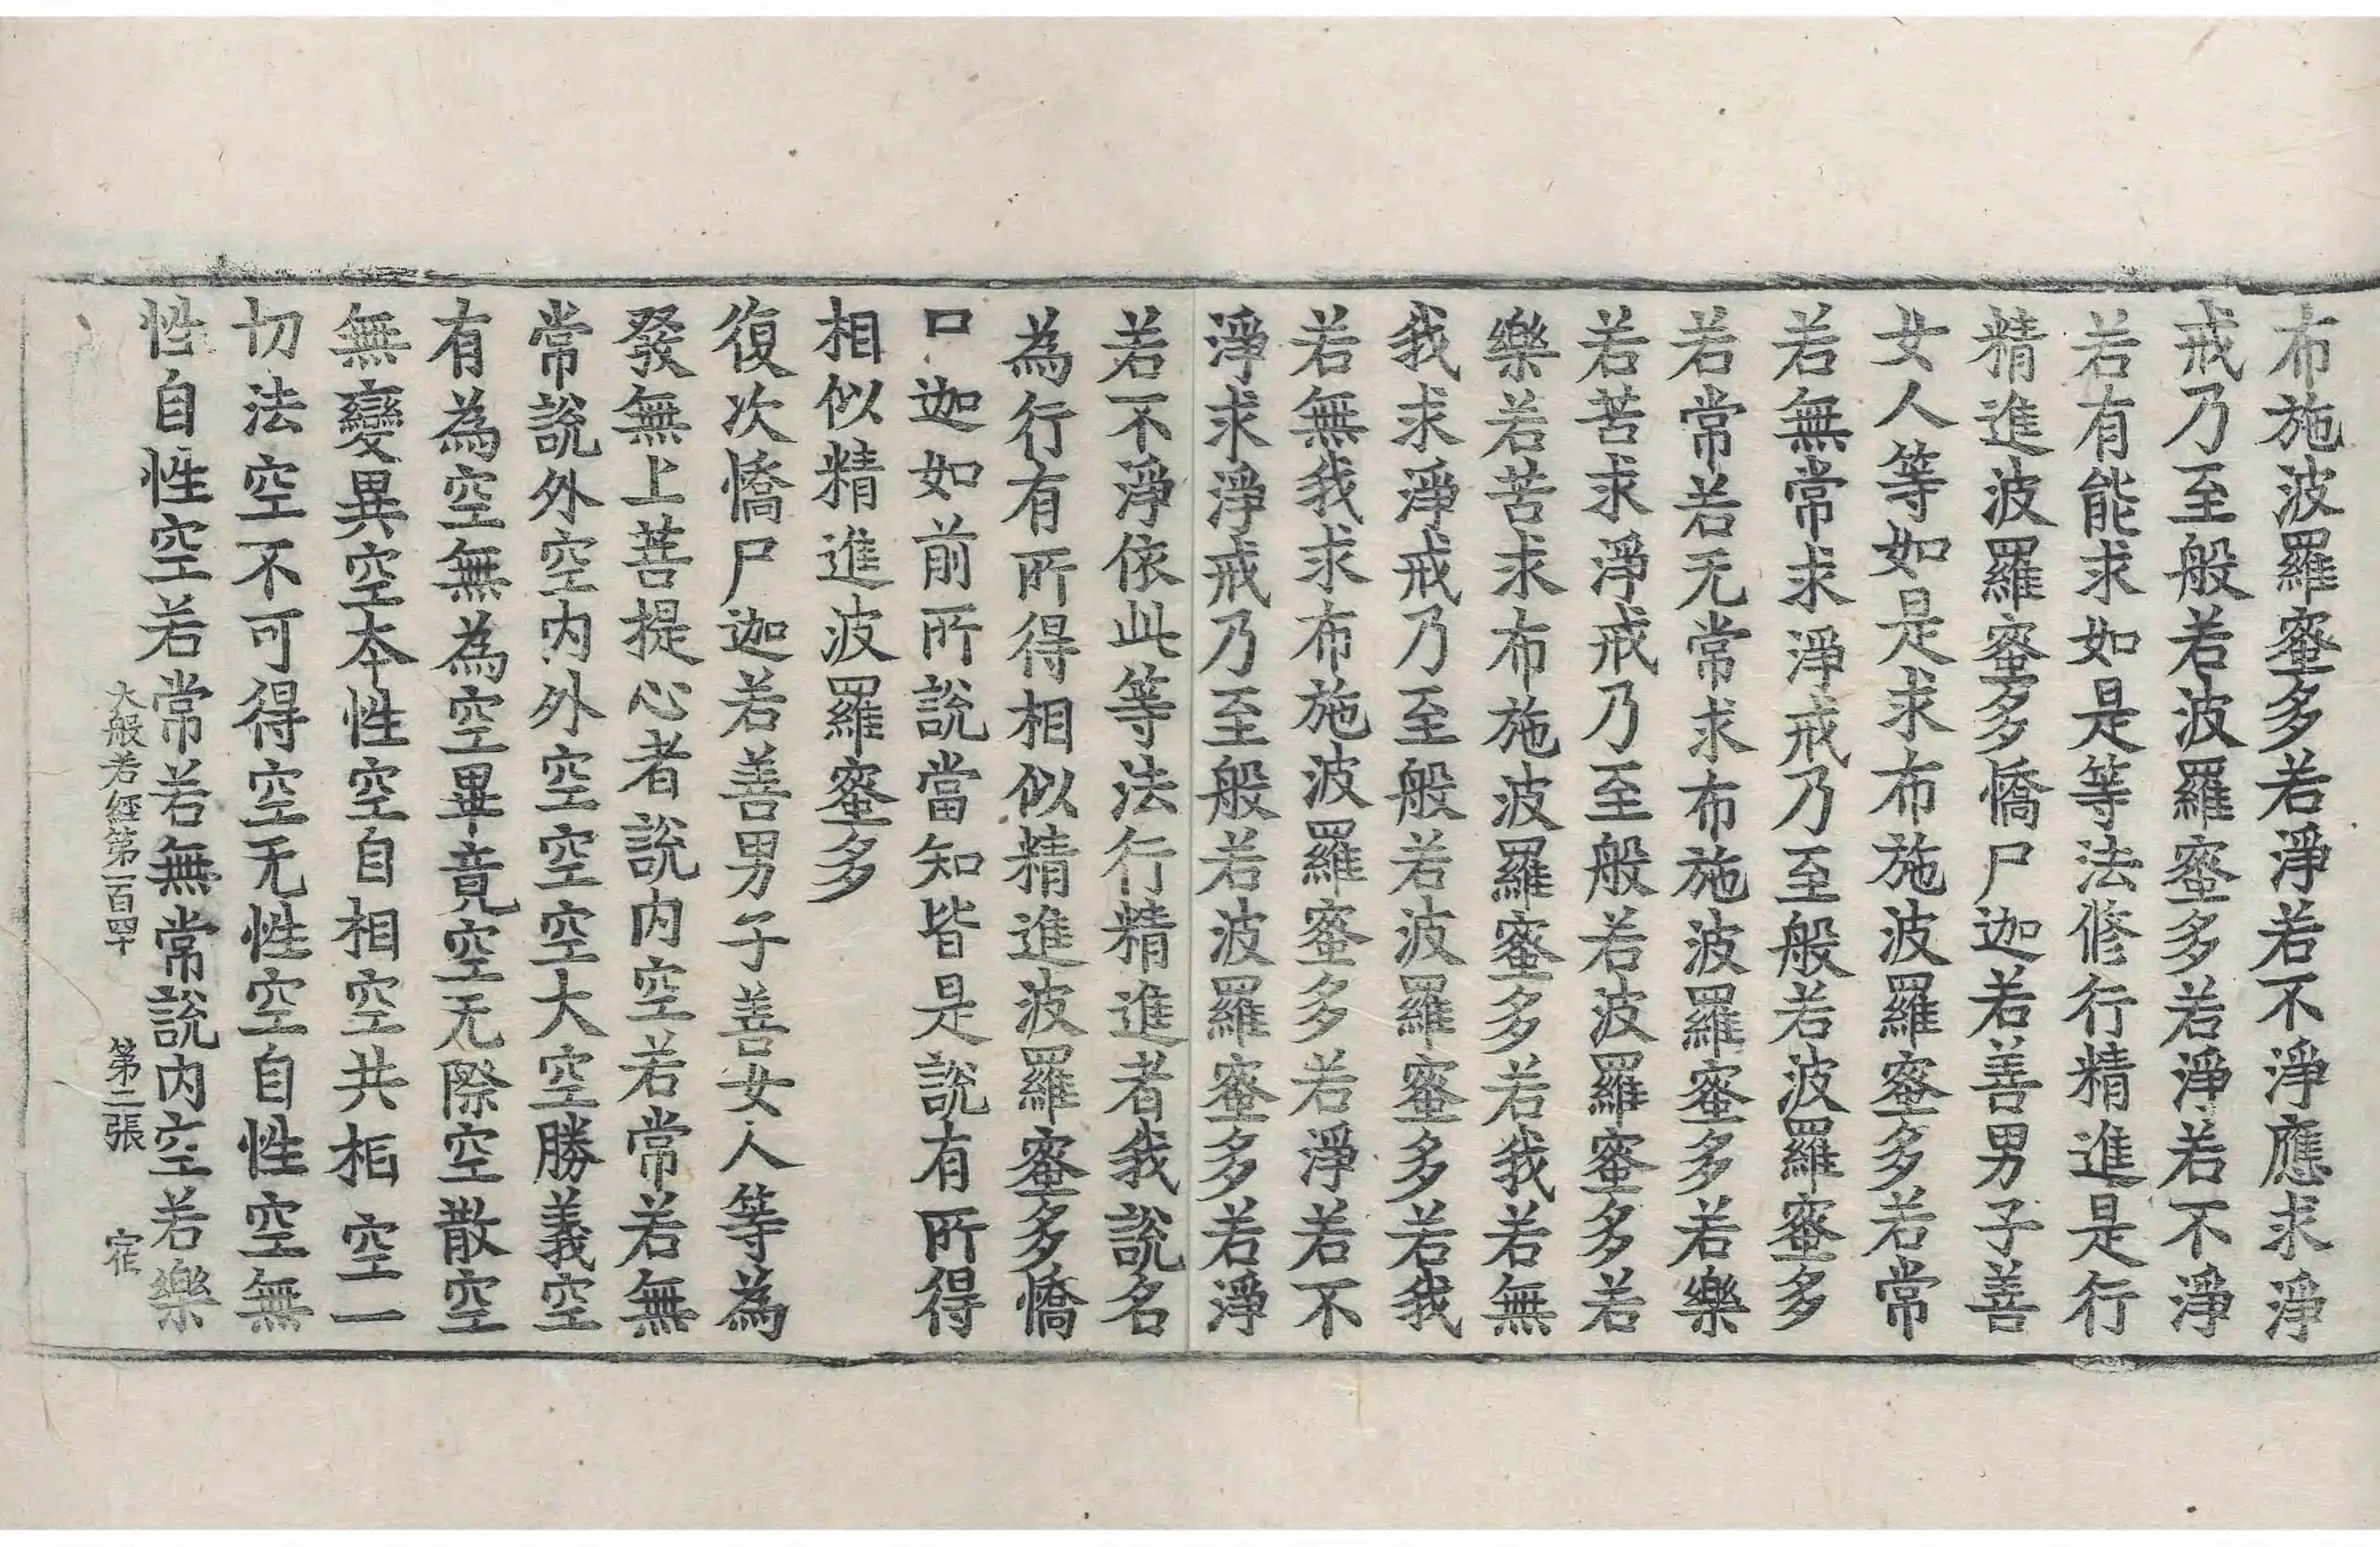 布施波羅蜜多若淨若不淨應求淨
戒乃至般若波羅蜜多若淨若不淨
若有能求如是等法修行精進是行
精進波羅蜜多憍尸迦若善男子善
女人等如是求布施波羅蜜多若常
若無常求淨戒乃至般若波羅蜜多
若常若无常求布施波羅蜜多若樂
若苦求淨戒乃至般若波羅蜜多若
樂若苦求布施波羅蜜多若我若無
我求淨戒乃至般若波羅蜜多若我
若無我求布施波羅蜜多若淨若不
淨求淨戒乃至般若波羅蜜多若淨
若不淨依此等法行精進者我說名
為行有所得相似精進波羅蜜多憍
口迦如前所說當知皆是說有所得
相似精進波羅蜜多
復次憍尸迦若善男子善女人等為
發無上菩提心者說内空若常若無
常說外空内外空空空大空勝義空
有為空無為空畢竟空无際空散空
無變異空本性空自相空共相空一
切法空不可得空无性空自性空無
性自性空若常若無常說内空若樂
大般若經第一百四十 第二張 宿